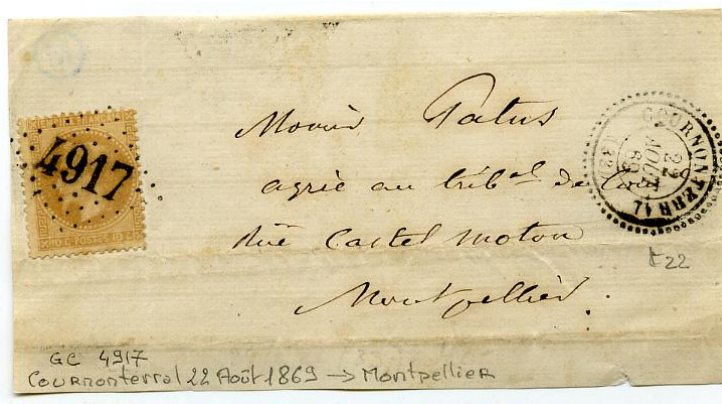 4917
COURNONTERRAL
22
AOUT
69
(32)
Monsr Patus
agréé au tribal de
Rue Castel moton
Montpellier
t22
GC 4917
Cournonterral 22 Août 1869 -> Montpellier